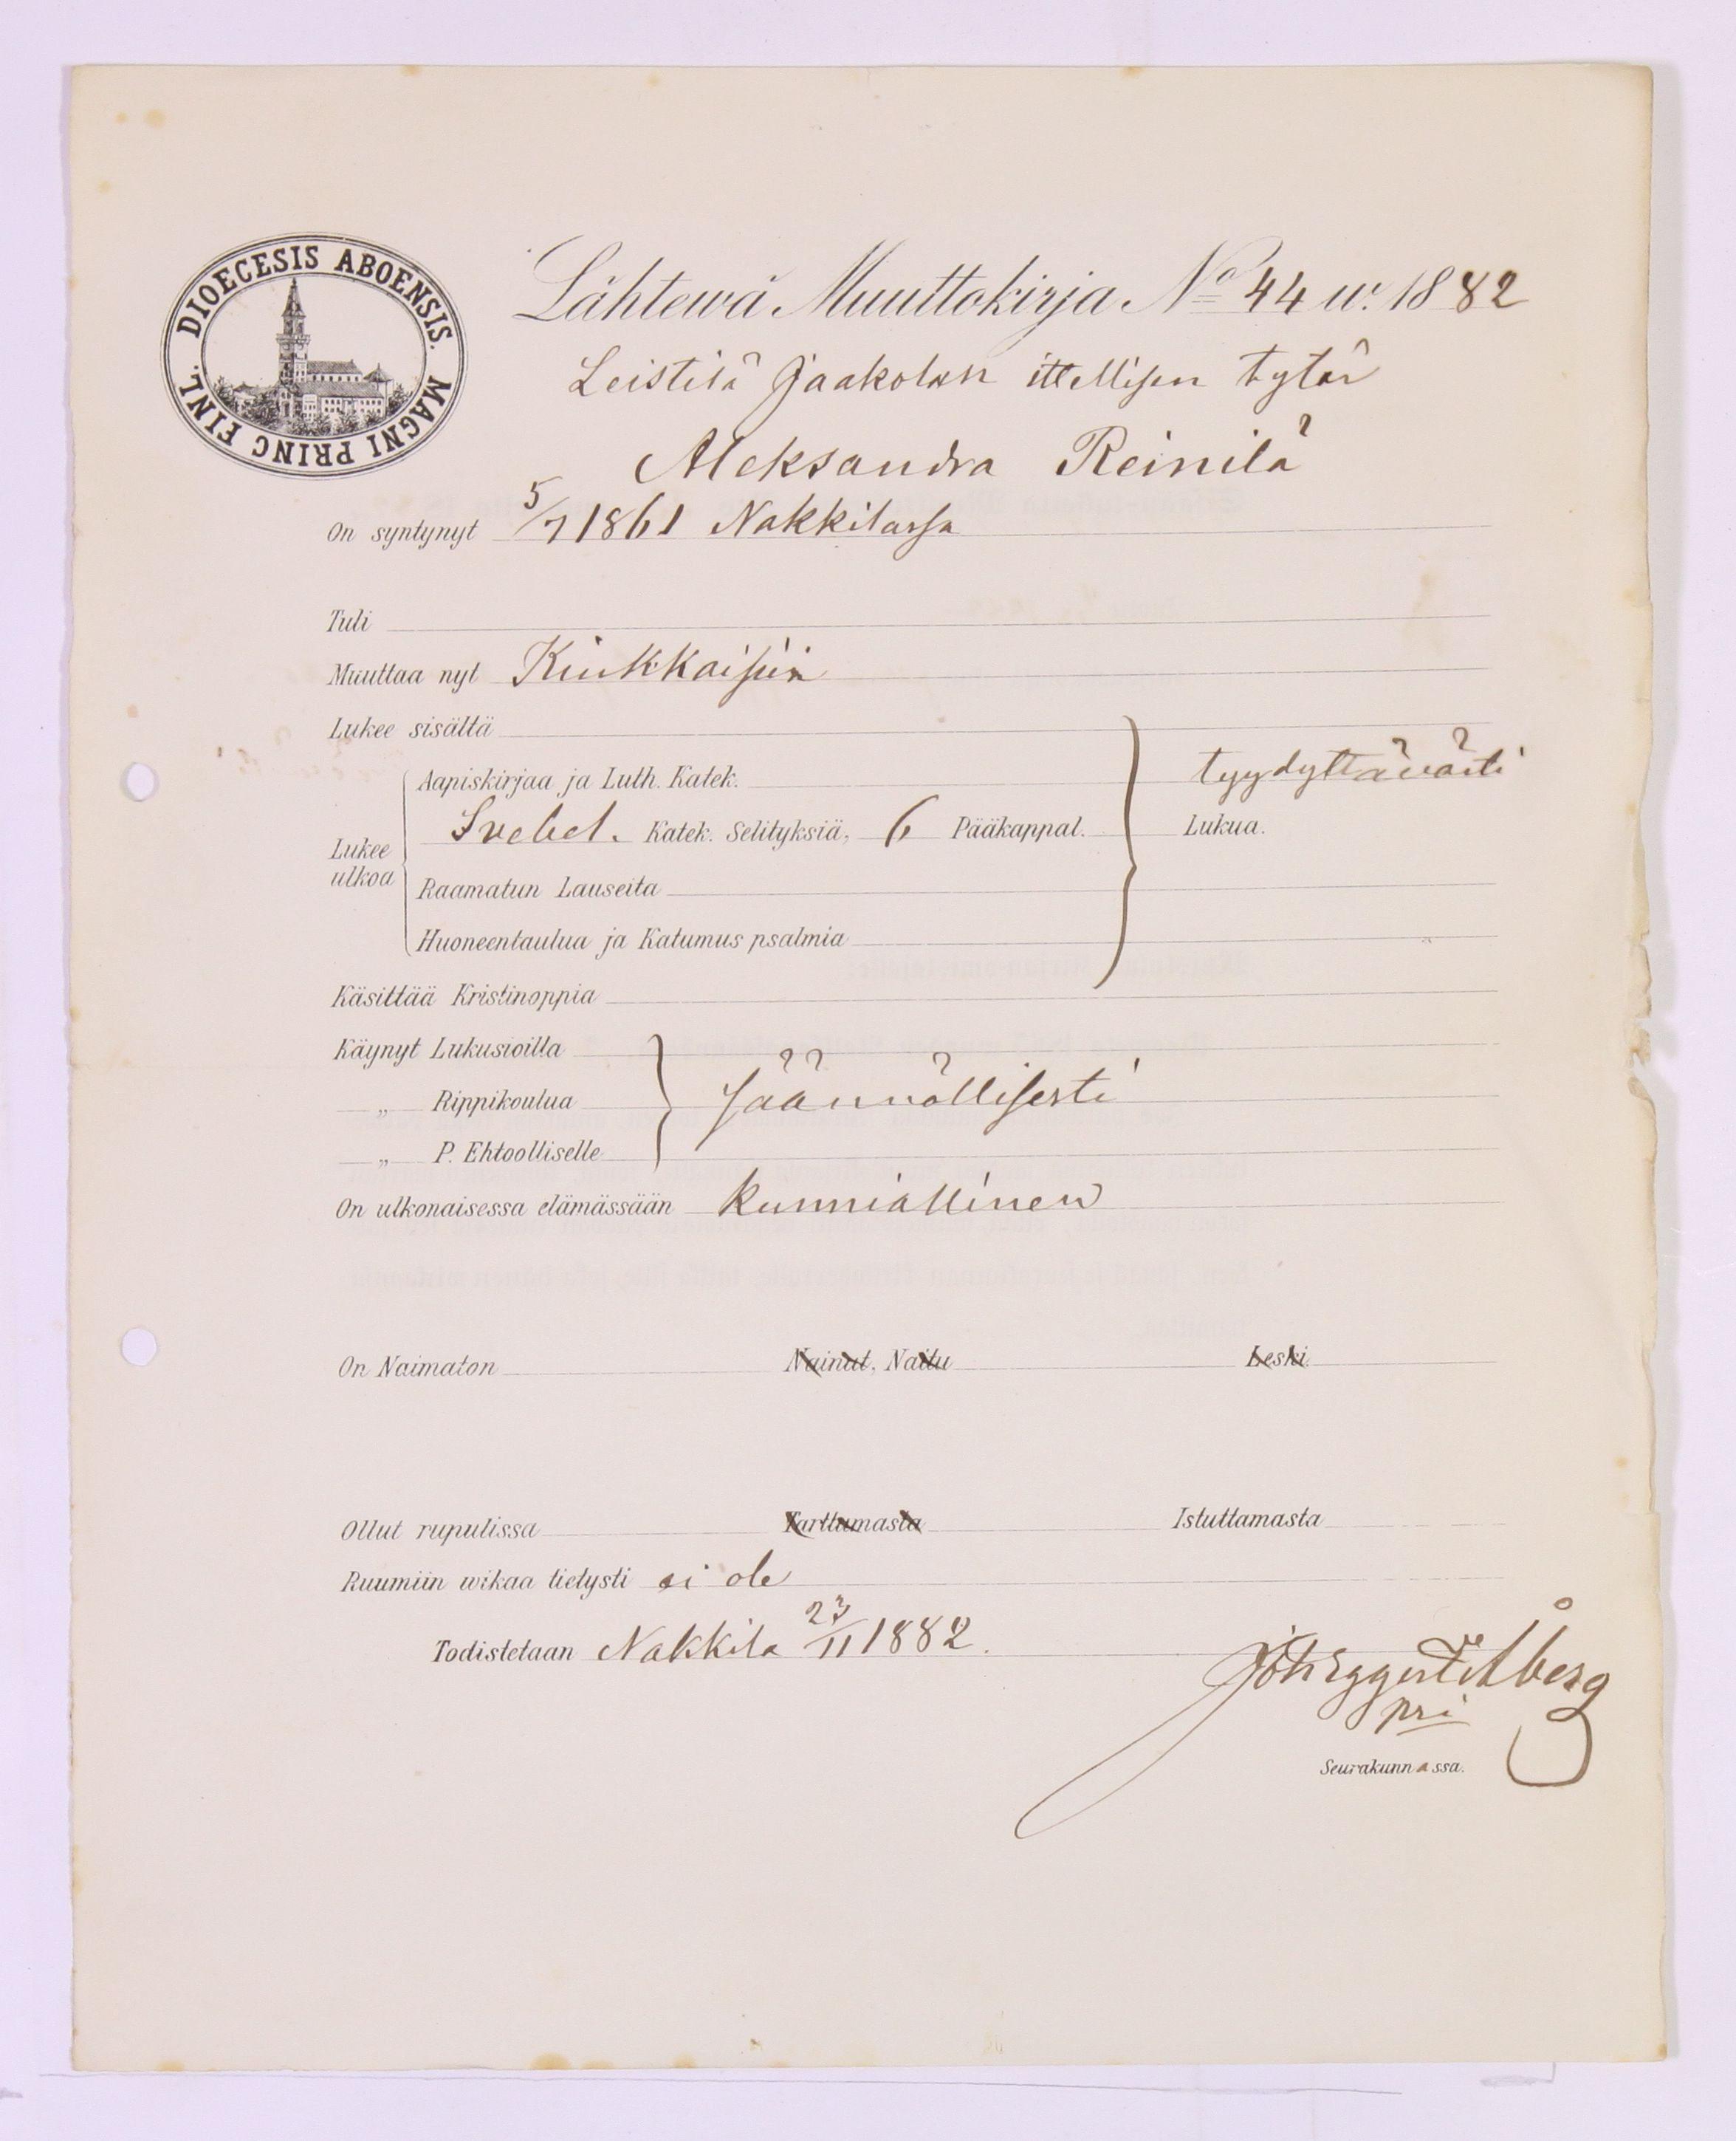 DIOECESIS ABOENSIS. MAGNI PRINC FINL.
Lähtewä Muuttokirja No 44 w. 1882
Leistilä Jaakolan ittellisen tytär
Aleksandra Reinilä
On syntynyt 5/7 1861 Nakkilassa
Tuli
Muuttaa nyt Kiukkaisiin
Lukee sisältä
Aapiskirjaa ja Luth. Katek.
tyydyttävästi
Lukee ulkoa
Svebel. Katek. Selityksiä, 6 Pääkappal. Lukua.
Raamatun Lauseita
Huoneentaulua ja Katumus psalmia
Käsittää Kristinoppia
Käynyt Lukusioilla
„ Rippikoulua säännöllisesti
„ P. Ehtoolliselle
On ulkonaisessa elämässään kunniallinen
On Naimaton Nainut, Naitu Leski
Ollut rupulissa Tarttumasta Istuttamasta
Ruumiin wikaa tietysti ei ole
Todistetaan Nakkila 23/11 1882.
Åberg
Seurakunnassa.